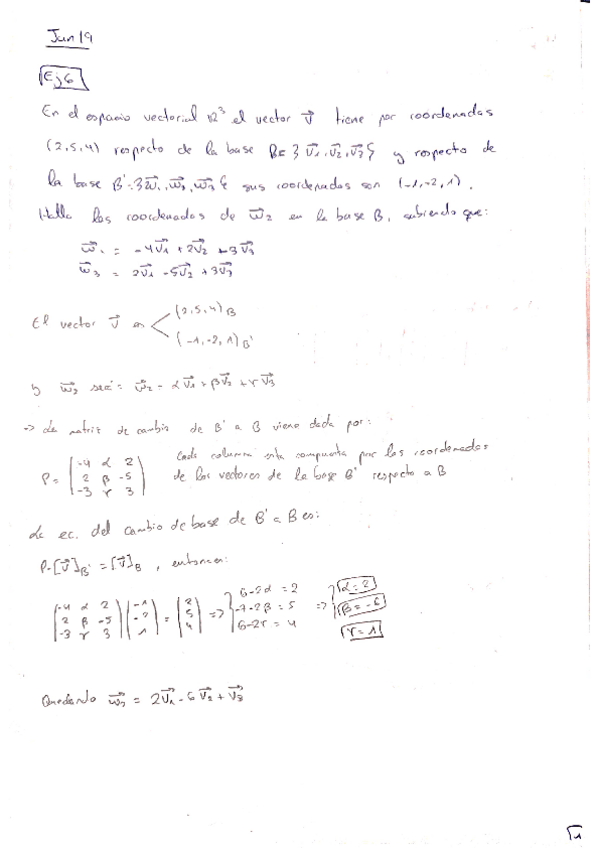 Jun 19
Ej 6
En el espacio vectorial R³ el vector v⃗ tiene por coordenadas
(2,5,4) respecto de la base B={v⃗1, v⃗2, v⃗3} y respecto de
la base B'={w⃗1, w⃗2, w⃗3} sus coordenadas son (-1,-2,1).
Halla las coordenadas de w⃗2 en la base B, sabiendo que:
w⃗1 = -4v⃗1 + 2v⃗2 - 3v⃗3
w⃗3 = 2v⃗1 - 5v⃗2 + 3v⃗3
El vector v⃗ en < (2,5,4)B
(-1,-2,1)B'
y w⃗2 será: w⃗2 = αv⃗1 + βv⃗2 + γv⃗3
-> La matriz de cambio de B' a B viene dada por:
P = ( -4 α 2
2 β -5
-3 γ 3 )
Cada columna esta compuesta por las coordenadas
de los vectores de la base B' respecto a B
La ec. del cambio de base de B' a B es:
P·[v⃗]B' = [v⃗]B, entonces:
( -4 α 2
2 β -5
-3 γ 3 ) ( -1
-2
1 ) = ( 2
5
4 ) => { 6-2α = 2
-7-2β = 5
6-2γ = 4 => { α = 2
β = -6
γ = 1
Quedando w⃗2 = 2v⃗1 - 6v⃗2 + v⃗3